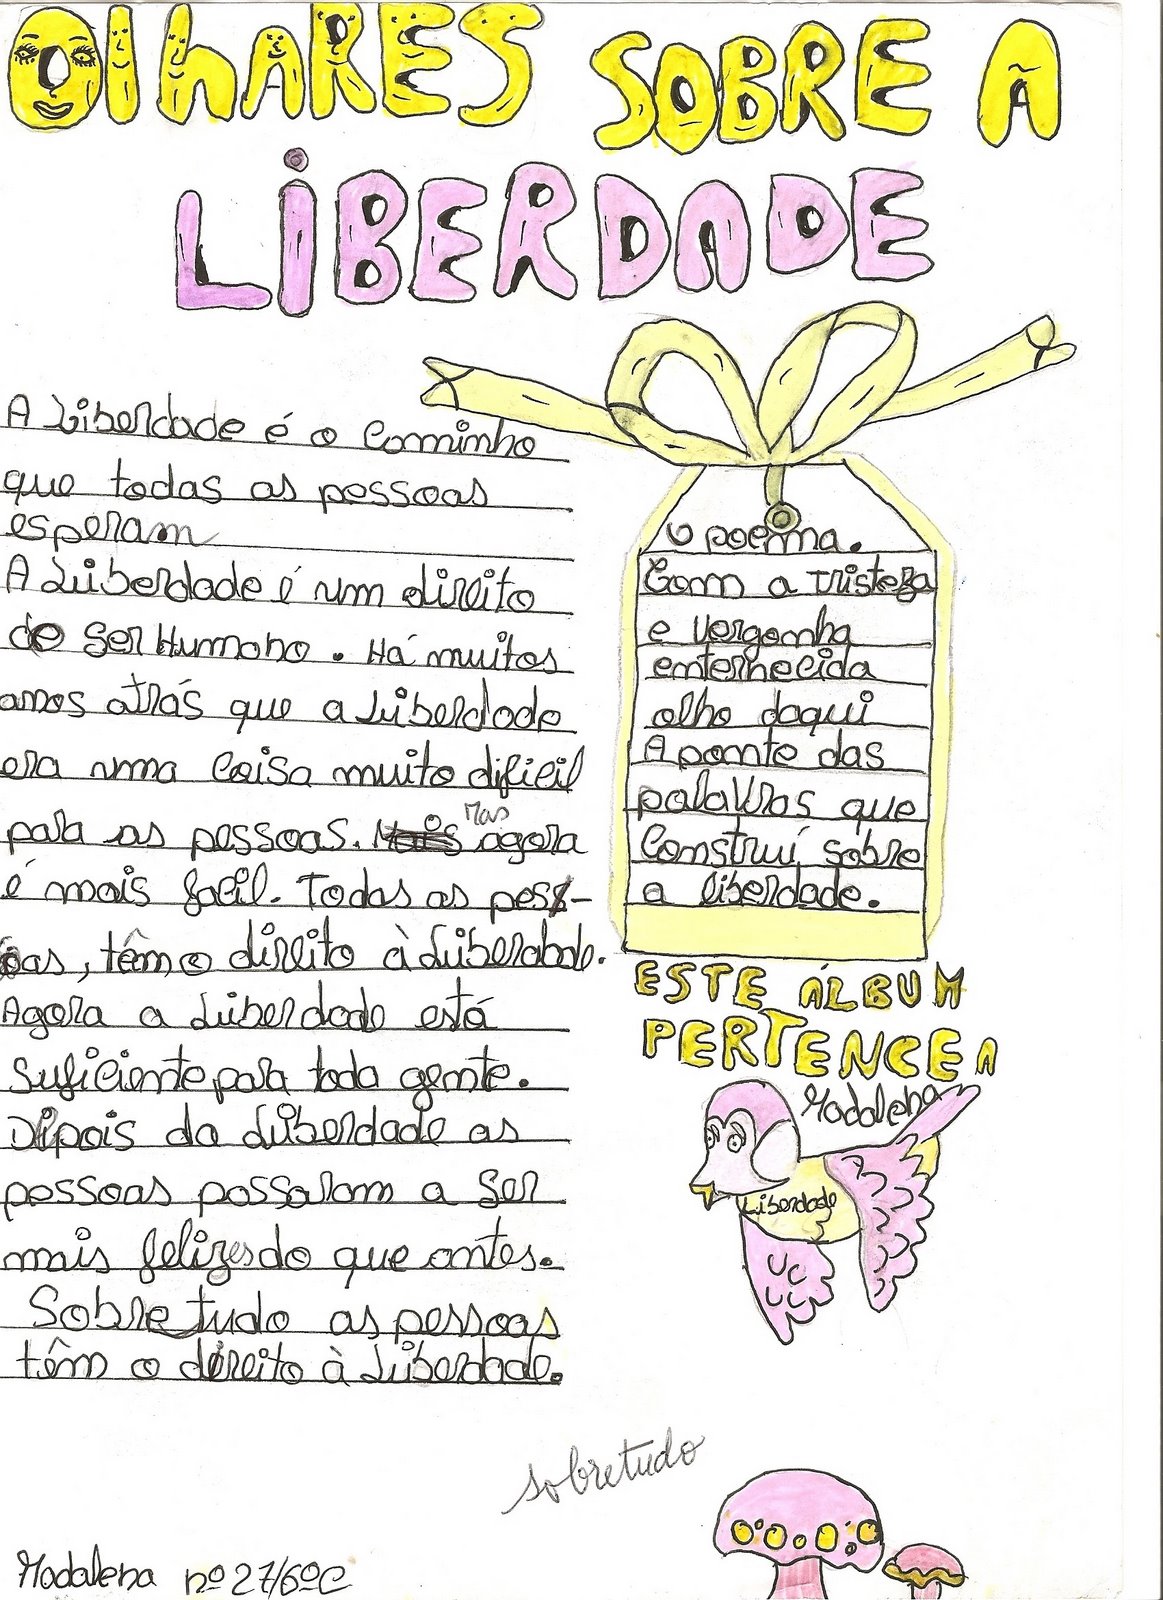 OlhARES SOBRE A
LiBERDADE
A Liberdade é o Caminho
que todas as pessoas
esperam
A Liiberdade é um direito
de Ser Humano. Há muitos
anos atrás que a Liiberdade
era uma Coisa muito dificil
para as pessoas. Mais Mas agora
é mais facil. Todas as pess-
oas, têm o direito à Liiberdade.
Agora a Liiberdade está
Suficiente para toda gente.
Dipois da Liiberdade as
pessoas passaram a Ser
mais felizes do que antes.
Sobre tudo as pessoas
têm o direito à Liiberdade.
O poema.
Com a tristeza
e vergonha
enternecida
olho daqui
A ponte das
palavras que
Construí sobre
a liberdade.
ESTE ÁLBUM
PERTENCE A
Madalena
Liberdade
sobretudo
Madalena nº 27/6ºC